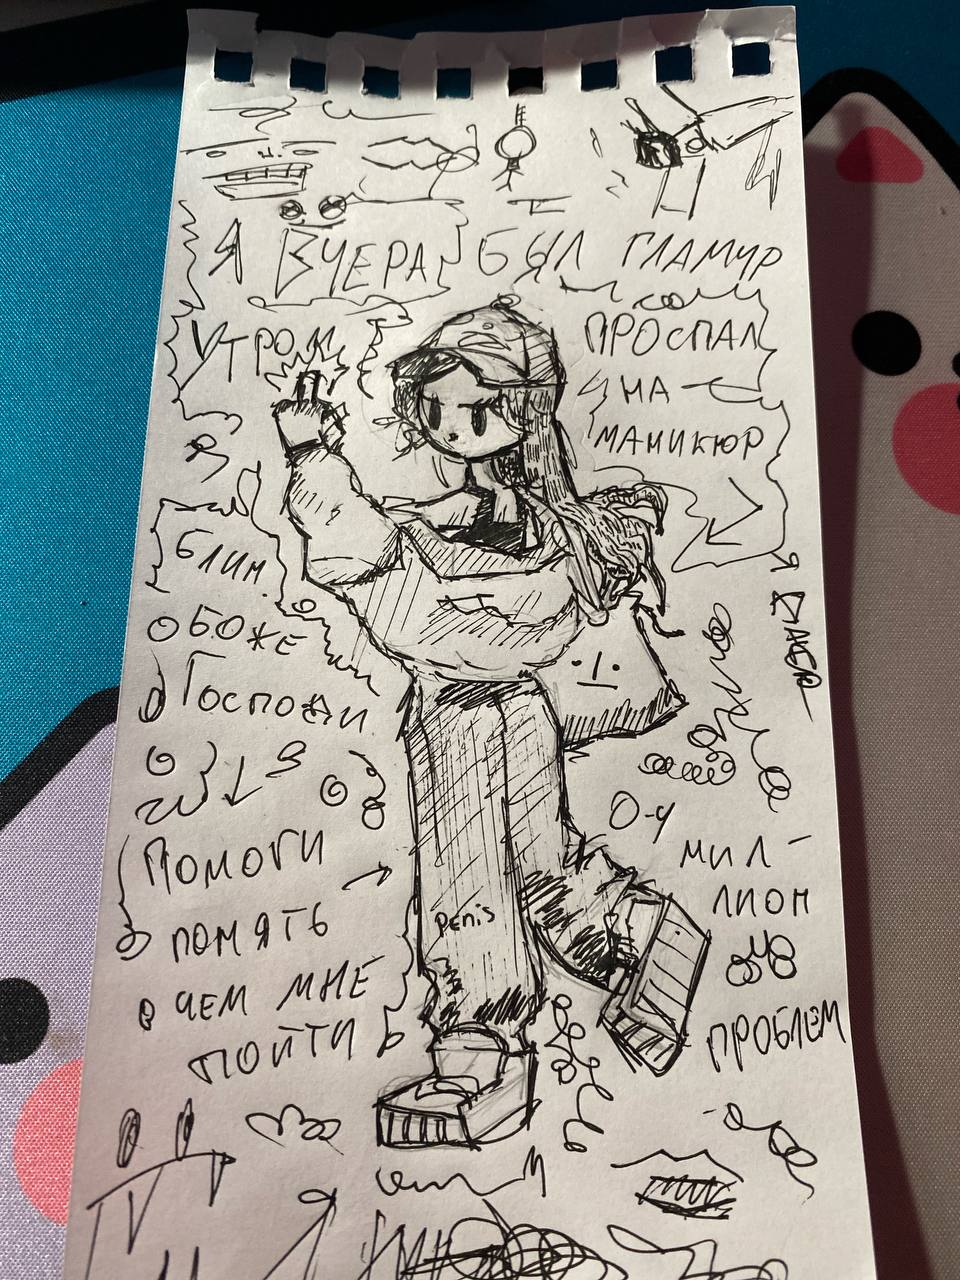 Я ВЧЕРА БЫЛ ГЛАМУР
УТРОМ
ПРОСПАЛ
НА
МАНИКЮР
БЛИН
О БОЖЕ
ГОСПОДИ
ПОМОГИ
ПОМЯТЬ
В ЧЕМ МНЕ
ПОЙТИ
О-У
МИЛ-
ЛИОН
ПРОБЛЕМ
penis